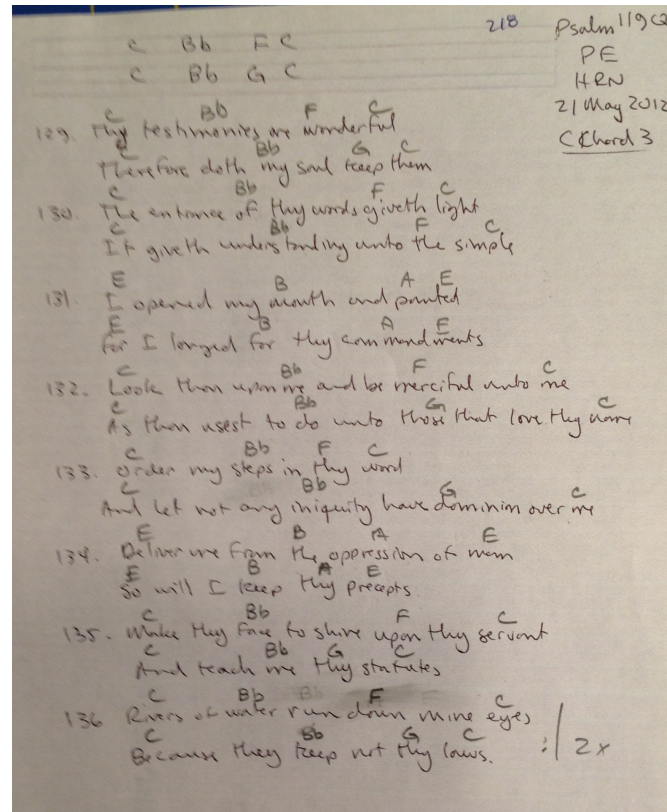 218 Psalm 119 Q
PE
HRN
21 May 2012
C Chord 3
C Bb F C
C Bb G C
C Bb F C
129. Thy testimonies are wonderful
C Bb G C
Therefore doth my soul keep them
C Bb F C
130. The entrance of thy words giveth light
C Bb F C
It giveth understanding unto the simple
E B A E
131. I opened my mouth and panted
E B A E
for I longed for thy commandments
C Bb F C
132. Look thou upon me and be merciful unto me
C Bb G C
As thou usest to do unto those that love thy name
C Bb F C
133. Order my steps in thy word
C Bb G C
And let not any iniquity have dominion over me
E B A E
134. Deliver me from the oppression of man
E B A E
So will I keep thy precepts
C Bb F C
135. Make thy face to shine upon thy servant
C Bb G C
And teach me thy statutes
C Bb Bb F C
136 Rivers of water run down mine eyes
C Bb G C
Because they keep not thy laws. :| 2x